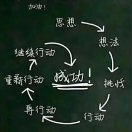 加油!
思想
想法
挑战
行动
再行动
重新行动
继续行动
成功!